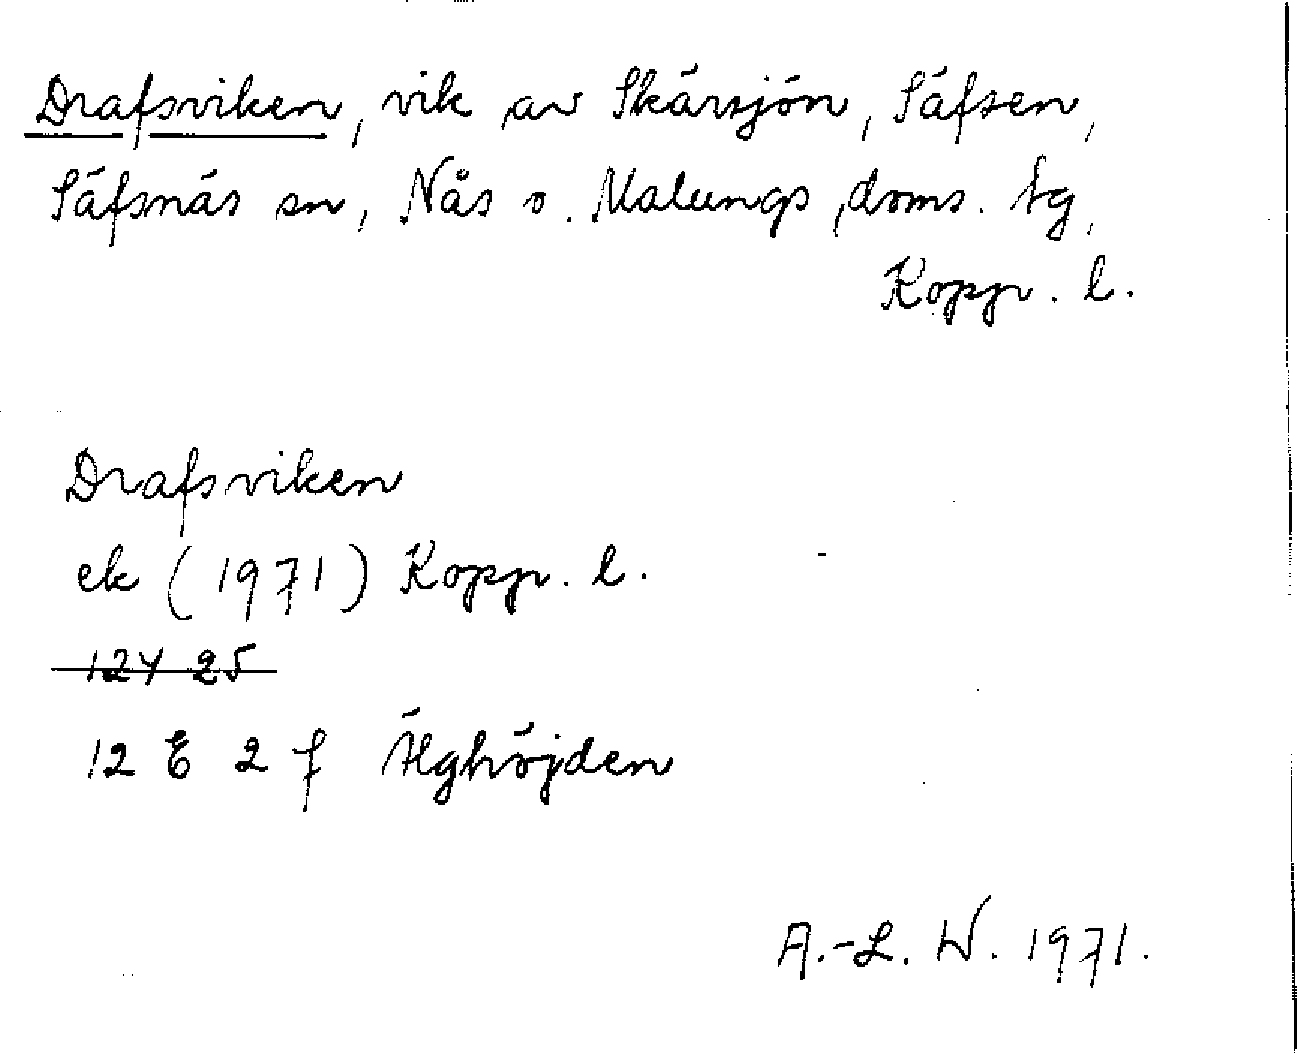 Drafsviken, vik av Skärsjön, Säfsen,
Säfsnäs sn, Nås o. Malungs doms. tg,
Kopp. l.
Drafsviken
ek (1971) Kopp. l.
12Y 25
12 E 2 f Älghöjden
A.-L. W. 1971.